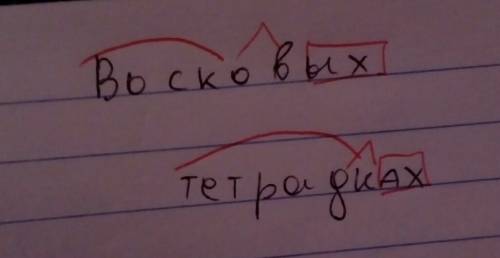 Восковых
тетрадках